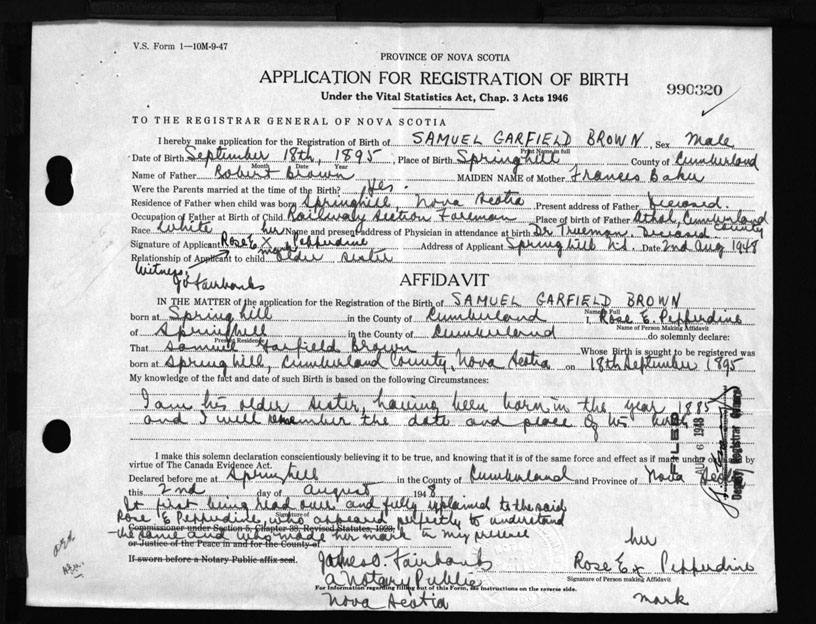 V.S. Form 1—10M-9-47
PROVINCE OF NOVA SCOTIA
APPLICATION FOR REGISTRATION OF BIRTH
990320
Under the Vital Statistics Act, Chap. 3 Acts 1946
TO THE REGISTRAR GENERAL OF NOVA SCOTIA
I hereby make application for the Registration of Birth of SAMUEL GARFIELD BROWN, Sex Male
Print Name in full
Date of Birth September 18th, 1895, Place of Birth Springhill County of Cumberland
Month Day Year
Name of Father Robert Brown MAIDEN NAME of Mother Frances Baker
Were the Parents married at the time of the Birth? Yes.
Residence of Father when child was born Springhill, Nova Scotia Present address of Father Deceased.
Occupation of Father at Birth of Child Railway Section Foreman Place of birth of Father Athol, Cumberland County
Race White Name and present address of Physician in attendance at birth Dr Trueman. Deceased
her
Signature of Applicant Rose E. x Pepperdine Address of Applicant Springhill N.S. Date 2nd Aug 1948
mark
Relationship of Applicant to child older sister
Witness:
J O Fairbanks
AFFIDAVIT
IN THE MATTER of the application for the Registration of the Birth of SAMUEL GARFIELD BROWN
Name in Full
born at Springhill in the County of Cumberland I, Rose E. Pepperdine
Name of Person Making Affidavit
of Springhill in the County of Cumberland do solemnly declare:
Present Residence
That Samuel Garfield Brown Whose Birth is sought to be registered was
born at Springhill, Cumberland County, Nova Scotia on 18th September 1895
My knowledge of the fact and date of such Birth is based on the following Circumstances:
I am his older sister, having been born in the year 1885
and I well remember the date and place of his birth
FILED
AUG 6 1948
Deputy Registrar General
I make this solemn declaration conscientiously believing it to be true, and knowing that it is of the same force and effect as if made under oath by
virtue of The Canada Evidence Act.
Declared before me at Springhill in the County of Cumberland and Province of Nova Scotia
this 2nd day of August 1948
It first being read over and fully explained to the said
Signature of
Rose E Pepperdine, who appeared perfectly to understand
Commissioner under Section 5, Chapter 38, Revised Statutes, 1923;
the same and who made her mark in my presence
or Justice of the Peace in and for the County of
If sworn before a Notary Public affix seal.
James O. Fairbanks
a Notary Public
Nova Scotia
her
Rose E x Pepperdine
Signature of Person making Affidavit
mark
For Information regarding filling out of this Form, see instructions on the reverse side.